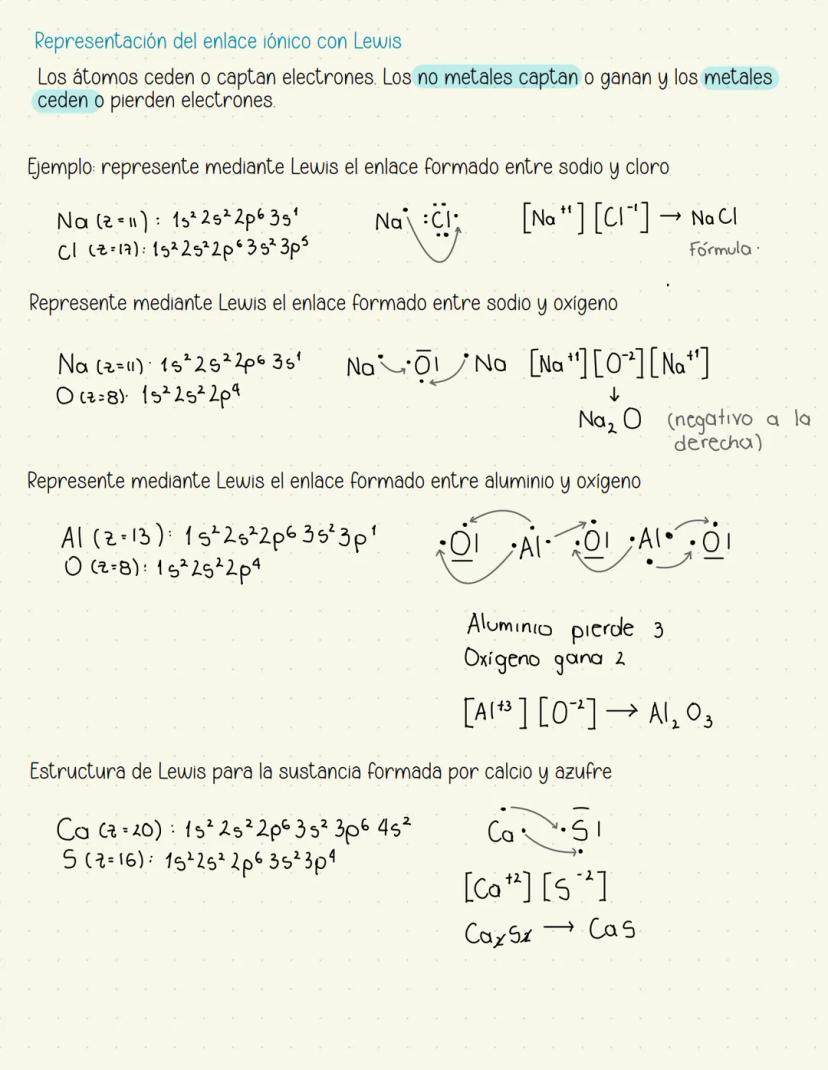 Representación del enlace iónico con Lewis
Los átomos ceden o captan electrones. Los no metales captan o ganan y los metales
ceden o pierden electrones.
Ejemplo: represente mediante Lewis el enlace formado entre sodio y cloro
Na (z=11) : 1s² 2s² 2p⁶ 3s¹ Na· :Cl· [Na⁺¹] [Cl⁻¹] → NaCl
Cl (z=17): 1s² 2s² 2p⁶ 3s² 3p⁵ Fórmula.
Represente mediante Lewis el enlace formado entre sodio y oxígeno
Na (z=11) · 1s² 2s² 2p⁶ 3s¹ Na· ·O| ·Na [Na⁺¹] [O⁻²] [Na⁺¹]
O (z=8)· 1s² 2s² 2p⁴ ↓
Na₂O (negativo a la
derecha)
Represente mediante Lewis el enlace formado entre aluminio y oxígeno
Al (z=13): 1s² 2s² 2p⁶ 3s² 3p¹ ·O| ·Al· ·O| ·Al· ·O|
O (z=8): 1s² 2s² 2p⁴
Aluminio pierde 3
Oxígeno gana 2
[Al⁺³] [O⁻²] → Al₂O₃
Estructura de Lewis para la sustancia formada por calcio y azufre
Ca (z=20) : 1s² 2s² 2p⁶ 3s² 3p⁶ 4s² Ca· ·S|
S (z=16): 1s² 2s² 2p⁶ 3s² 3p⁴
[Ca⁺²] [S⁻²]
Ca₂S₂ → CaS